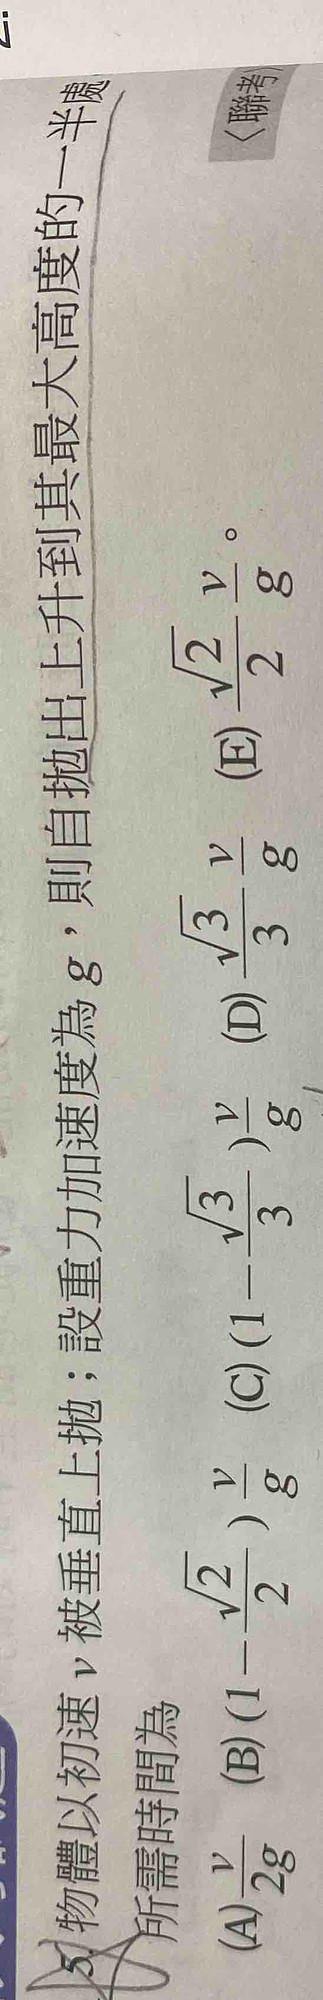 5. 物體以初速 v 被垂直上拋；設重力加速度為 g，則自拋出上升到其最大高度的一半處
所需時間為 〈聯考〉
(A) $\frac{v}{2g}$ (B) $(1-\frac{\sqrt{2}}{2})\frac{v}{g}$ (C) $(1-\frac{\sqrt{3}}{3})\frac{v}{g}$ (D) $\frac{\sqrt{3}}{3}\frac{v}{g}$ (E) $\frac{\sqrt{2}}{2}\frac{v}{g}$。